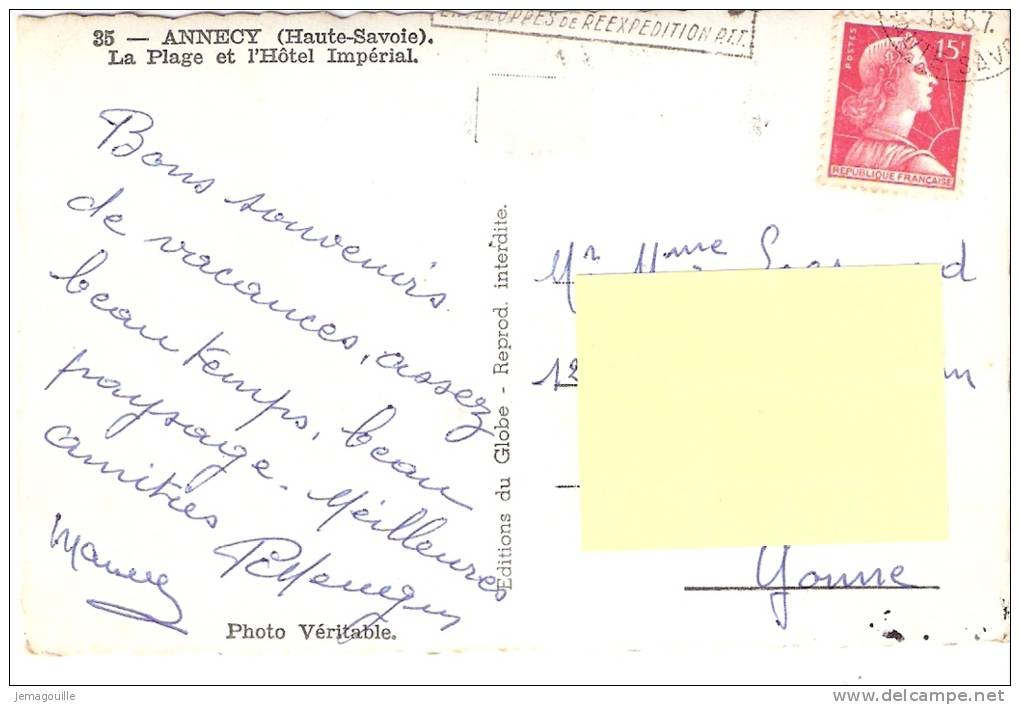 35 — ANNECY (Haute-Savoie).
La Plage et l'Hôtel Impérial.
ENVELOPPES DE REEXPEDITION P.T.T.
1957
SAVO
POSTES
15F
REPUBLIQUE FRANÇAISE
Bons souvenirs
de vacances, assez
beau temps, beau
paysage. Meilleures
amitiés
Photo Véritable.
Editions du Globe - Reprod. interdite.
Mr Mme
12
Yonne
Jemagouille
www.delcampe.net